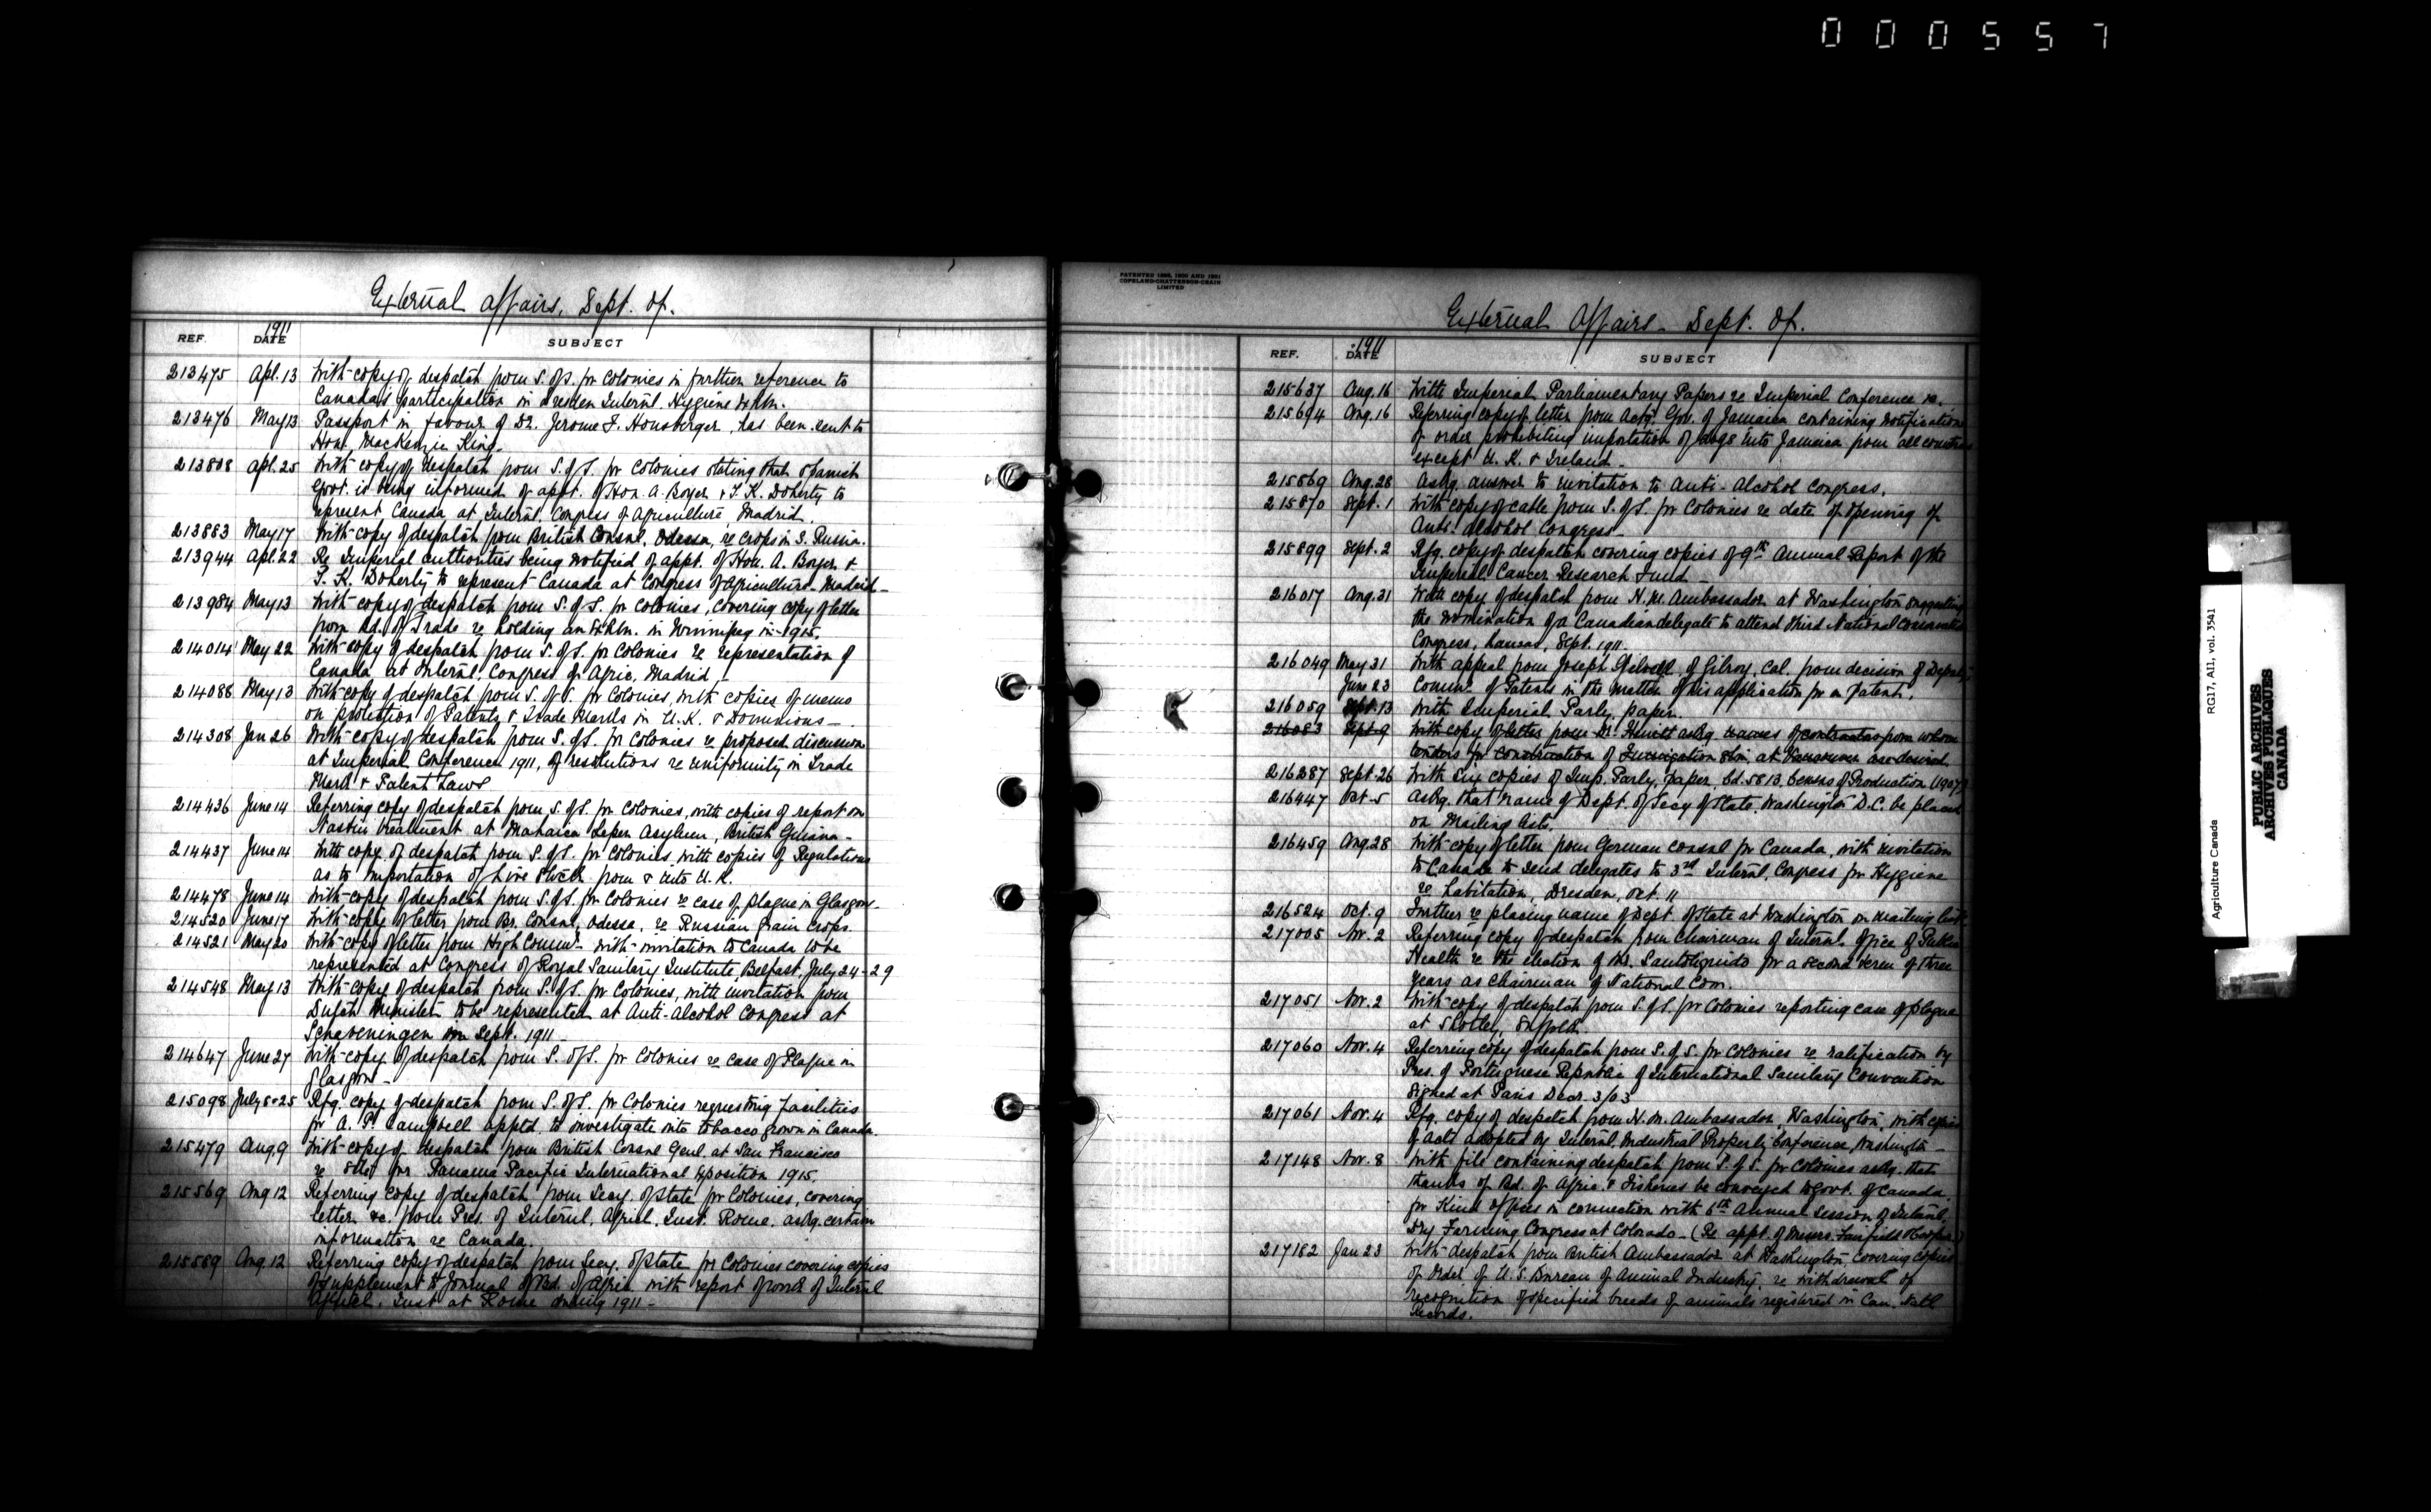 000557
External Affairs, Dept. of.
1911
REF. DATE SUBJECT
213475 Apl. 13 With copy of despatch from S. of S. for Colonies in further reference to
Canada's participation in Dresden Internl. Hygiene Exhbn.
213476 May 13 Passport in favour of Dr. Jerome F. Honsberger, has been sent to
Hon. MacKenzie King.
213808 Apl. 25 With copy of despatch from S. of S. for Colonies stating that Spanish
Govt. is being informed of appt. of Hon. A. Boyer & T. K. Doherty to
represent Canada at Internl. Congress of Agriculture, Madrid.
213883 May 17 With copy of despatch from British Consul, Odessa, re crops in S. Russia.
213944 Apl. 22 Re Imperial authorities being notified of appt. of Hon. A. Boyer &
T. K. Doherty to represent Canada at Congress of Agriculture - Madrid -
213984 May 13 With copy of despatch from S. of S. for Colonies, covering copy of letter
from Bd. of Trade re holding an Exhbn. in Winnipeg in 1915.
214014 May 22 With copy of despatch from S. of S. for Colonies re representation of
Canada at Internl. Congress of Agric. Madrid, -
214088 May 13 With copy of despatch from S. of S. for Colonies, with copies of memo
on protection of Patents & Trade Marks in U.K. & Dominions -
214308 Jan 26 With copy of despatch from S. of S. for Colonies re proposed discussion
at Imperial Conference 1911, of resolutions re uniformity in Trade
Mark & Patent Laws
214436 June 14 Referring copy of despatch from S. of S. for Colonies, with copies of report on
Nastin treatment at Mahaica Leper Asylum, British Guiana -
214437 June 14 With copy of despatch from S. of S. for Colonies with copies of Regulations
as to importation of Live Stock from & into U.K.
214478 June 14 With copy of despatch from S. of S. for Colonies re case of plague in Glasgow -
214520 June 17 With copy of letter from Br. Consul, Odessa, re Russian Grain crops.
214521 May 20 With copy of letter from High Commr. with invitation to Canada to be
represented at Congress of Royal Sanitary Institute, Belfast, July 24-29
214548 May 13 With copy of despatch from S. of S. for Colonies, with invitation from
Dutch Minister to be represented at Anti-Alcohol Congress at
Scheveningen in Sept. 1911 -
214647 June 27 With copy of despatch from S. of S. for Colonies re case of Plague in
Glasgow -
215098 July 8-25 Rfg. copy of despatch from S. of S. for Colonies requesting facilities
for A. P. Campbell apptd. to investigate into tobacco grown in Canada.
215479 Aug. 9 With copy of despatch from British Consul Genl. at San Francisco
re for Panama Pacific International Exposition 1915.
215569 Aug 12 Referring copy of despatch from Secy. of State for Colonies, covering
letter &c. from Pres. of Internl. Agricl. Inst. Rome, askg. certain
information re Canada.
215589 Aug. 12 Referring copy of despatch from Secy. of State for Colonies covering copies
of supplement to Journal of Bd. of Agric. with report of work of Internl
Agricl. Inst at Rome during 1911 -
PATENTED 1899, 1900 AND 1901
COPELAND-CHATTERSON-CRAIN
LIMITED
External Affairs - Dept. of.
1911
REF. DATE SUBJECT
215637 Aug. 16 With Imperial Parliamentary Papers re Imperial Conference &c.
215694 Aug. 16 Referring copy of letter from Actg. Gov. of Jamaica containing notification
of order prohibiting importation of dogs into Jamaica from all countries
except U.K. & Ireland -
215869 Aug. 28 Askg. answer to invitation to Anti-Alcohol Congress.
215870 Sept. 1 With copy of cable from S. of S. for Colonies re date of opening of
Anti-Alcohol Congress -
215899 Sept. 2 Rfg. copy of despatch covering copies of 9th Annual Report of the
Imperial Cancer Research Fund -
216017 Aug. 31 With copy of despatch from H. M. Ambassador at Washington suggesting
the nomination of a Canadian delegate to attend Third National Conservation
Congress, Kansas, Sept. 1911.
216049 May 31 With appeal from Joseph of Gilroy, Cal. from decision of Deputy
June 23 Commr. of Patents in the matter of his application for a Patent.
216059 Sept. 13 With Imperial Parly. paper.
216083 Sept 9 With copy of letter from Dr. Hewitt askg. names of contractors from whom
tenders for construction of Fumigation Stn. at Vancouver are desired
216287 Sept. 26 With Six copies of Imp. Parly. Paper, Cd. 5813, Census of Production (1907)
216447 Oct. 5 Askg. that name of Dept. of Secy of State, Washington D.C. be placed
on Mailing list.
216459 Aug. 28 With copy of letter from German Consul for Canada, with invitation
to Canada to send delegates to 3rd Internl. Congress for Hygiene
re habitation, Dresden, Oct. 11
216524 Oct. 9 Further re placing name of Dept. of State at Washington on mailing list
217005 Nov. 2 Referring copy of despatch from Chairman of Internl. Office of Public
Health re the election of Mr. Santoliquido for a second term of three
years as Chairman of National Com.
217051 Nov. 2 With copy of despatch from S. of S. for Colonies reporting case of plague
at Shotley, Suffolk.
217060 Nov. 4 Referring copy of despatch from S. of S. for Colonies re ratification by
Pres. of Portuguese Republic of International Sanitary Convention
signed at Paris Decr. 3/03
217061 Nov. 4 Rfg. copy of despatch from H. M. Ambassador, Washington, with copies
of acts adopted by Internl. Industrial Property Conference, Washington -
217148 Nov. 8 With file containing despatch from S. of S. for Colonies askg. that
thanks of Bd. of Agric. & Fisheries be conveyed to Govt. of Canada
for kind offices in connection with 6th Annual Session of Internl.
Dry Farming Congress at Colorado - (Re appt. of Messrs. Fairfield & Cooper)
217182 Jan 23 With despatch from British Ambassador at Washington, covering copies
of Order of U.S. Bureau of Animal Industry, re withdrawal of
recognition of specified breeds of animals registered in Can. Natl.
Records.
Agriculture Canada RG17, A11, vol. 3541
PUBLIC ARCHIVES
ARCHIVES PUBLIQUES
CANADA